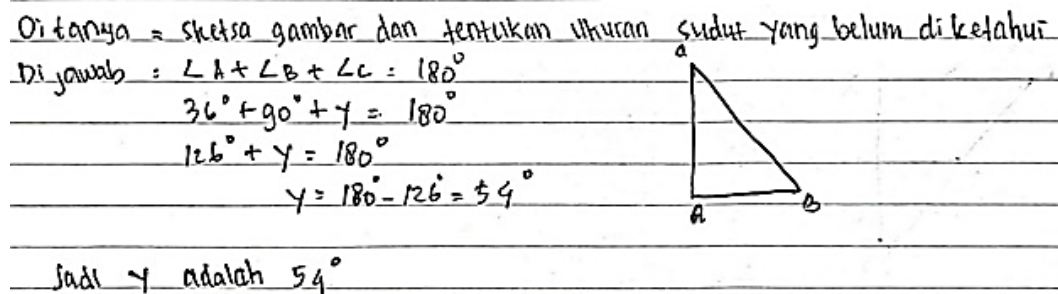 Ditanya = sketsa gambar dan tentukan ukuran sudut yang belum diketahui
Dijawab : ∠A + ∠B + ∠C = 180°
36° + 90° + y = 180°
126° + y = 180°
y = 180° - 126° = 54°
Jadi y adalah 54°
a
A
B